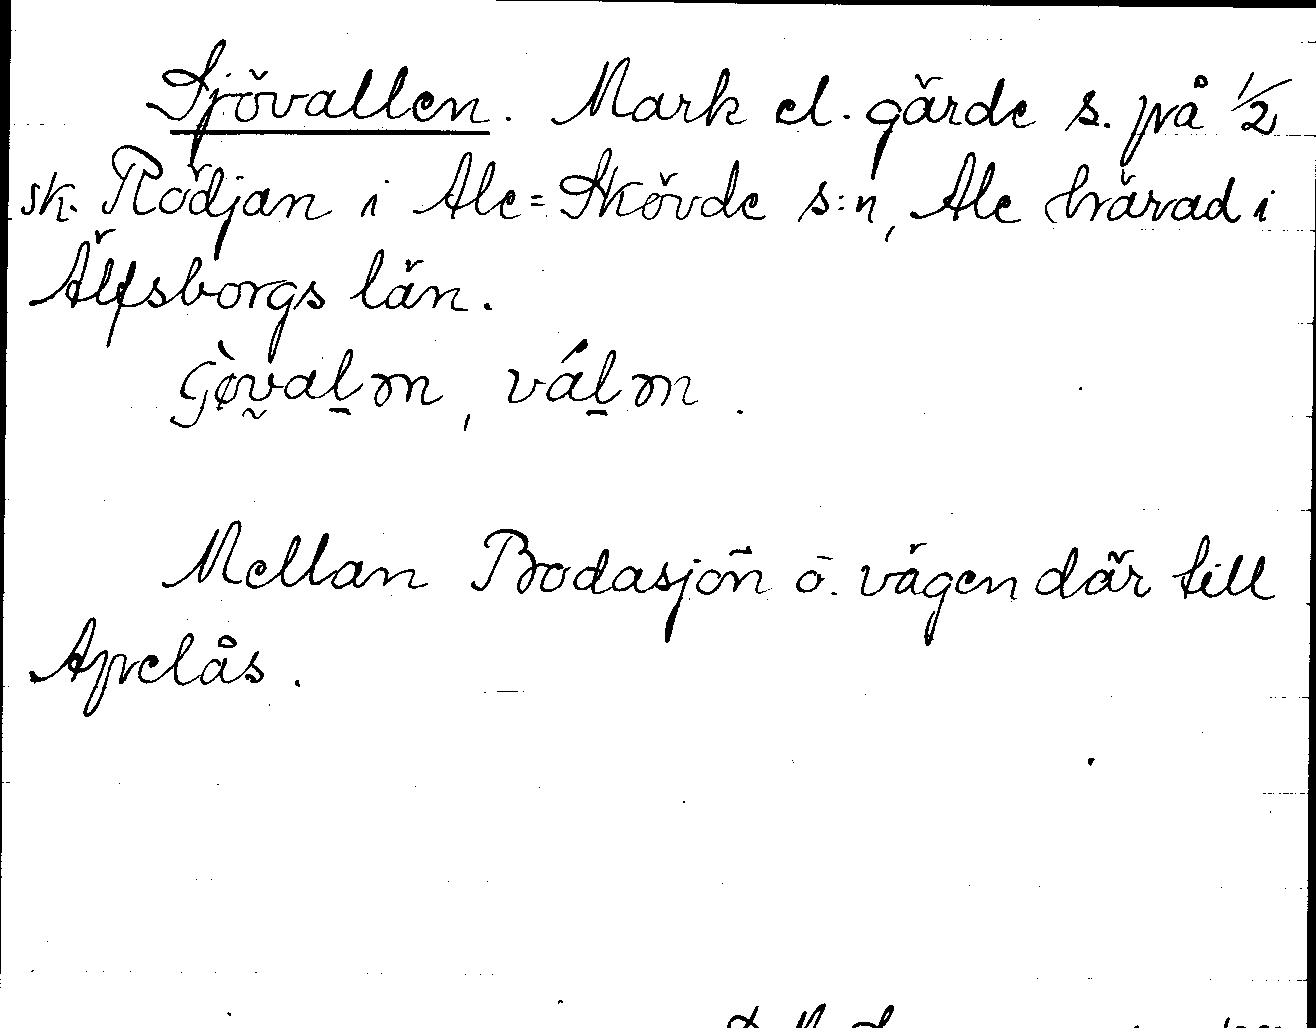 Sjövallen. Mark el. gärde s. på 1/2
sk. Rödjan i Ale=Skövde s:n, Ale härad i
Älfsborgs län.
Mellan Bodasjön o. vägen där till
Apelås.